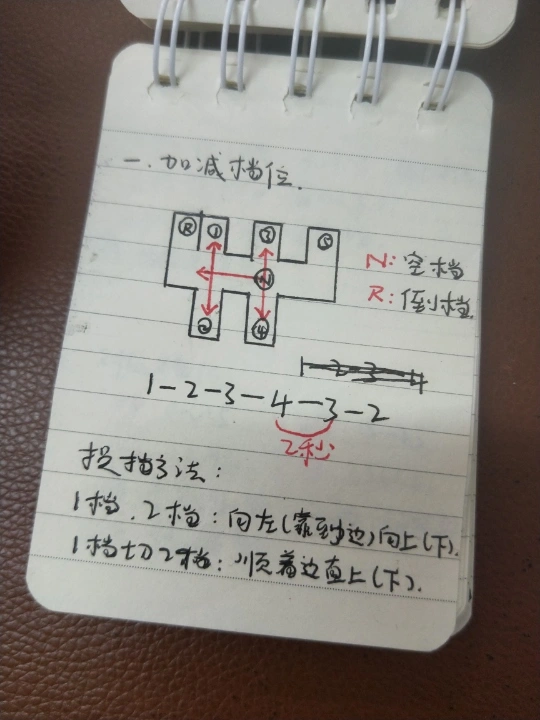 一.加减档位.
R ① ③ ⑤
N
② ④
N: 空档
R: 倒档
1-2-3-4-3-2
2秒
换挡方法:
1档、2档: 向左(靠到边)向上(下).
1档切2档: 顺着边直上(下).